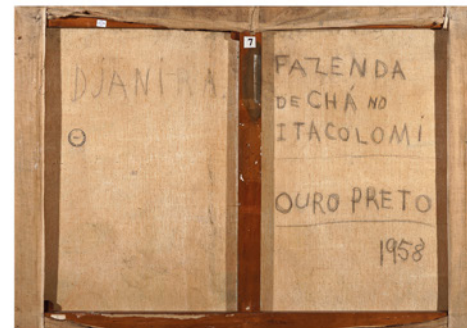 DJANIRA
7
FAZENDA
DE CHÁ NO
ITACOLOMÍ
OURO PRETO
1958